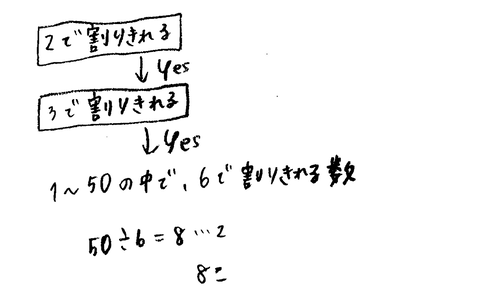 2で割りきれる
Yes
3で割りきれる
Yes
1〜50の中で、6で割りきれる数
50÷6=8…2
8こ